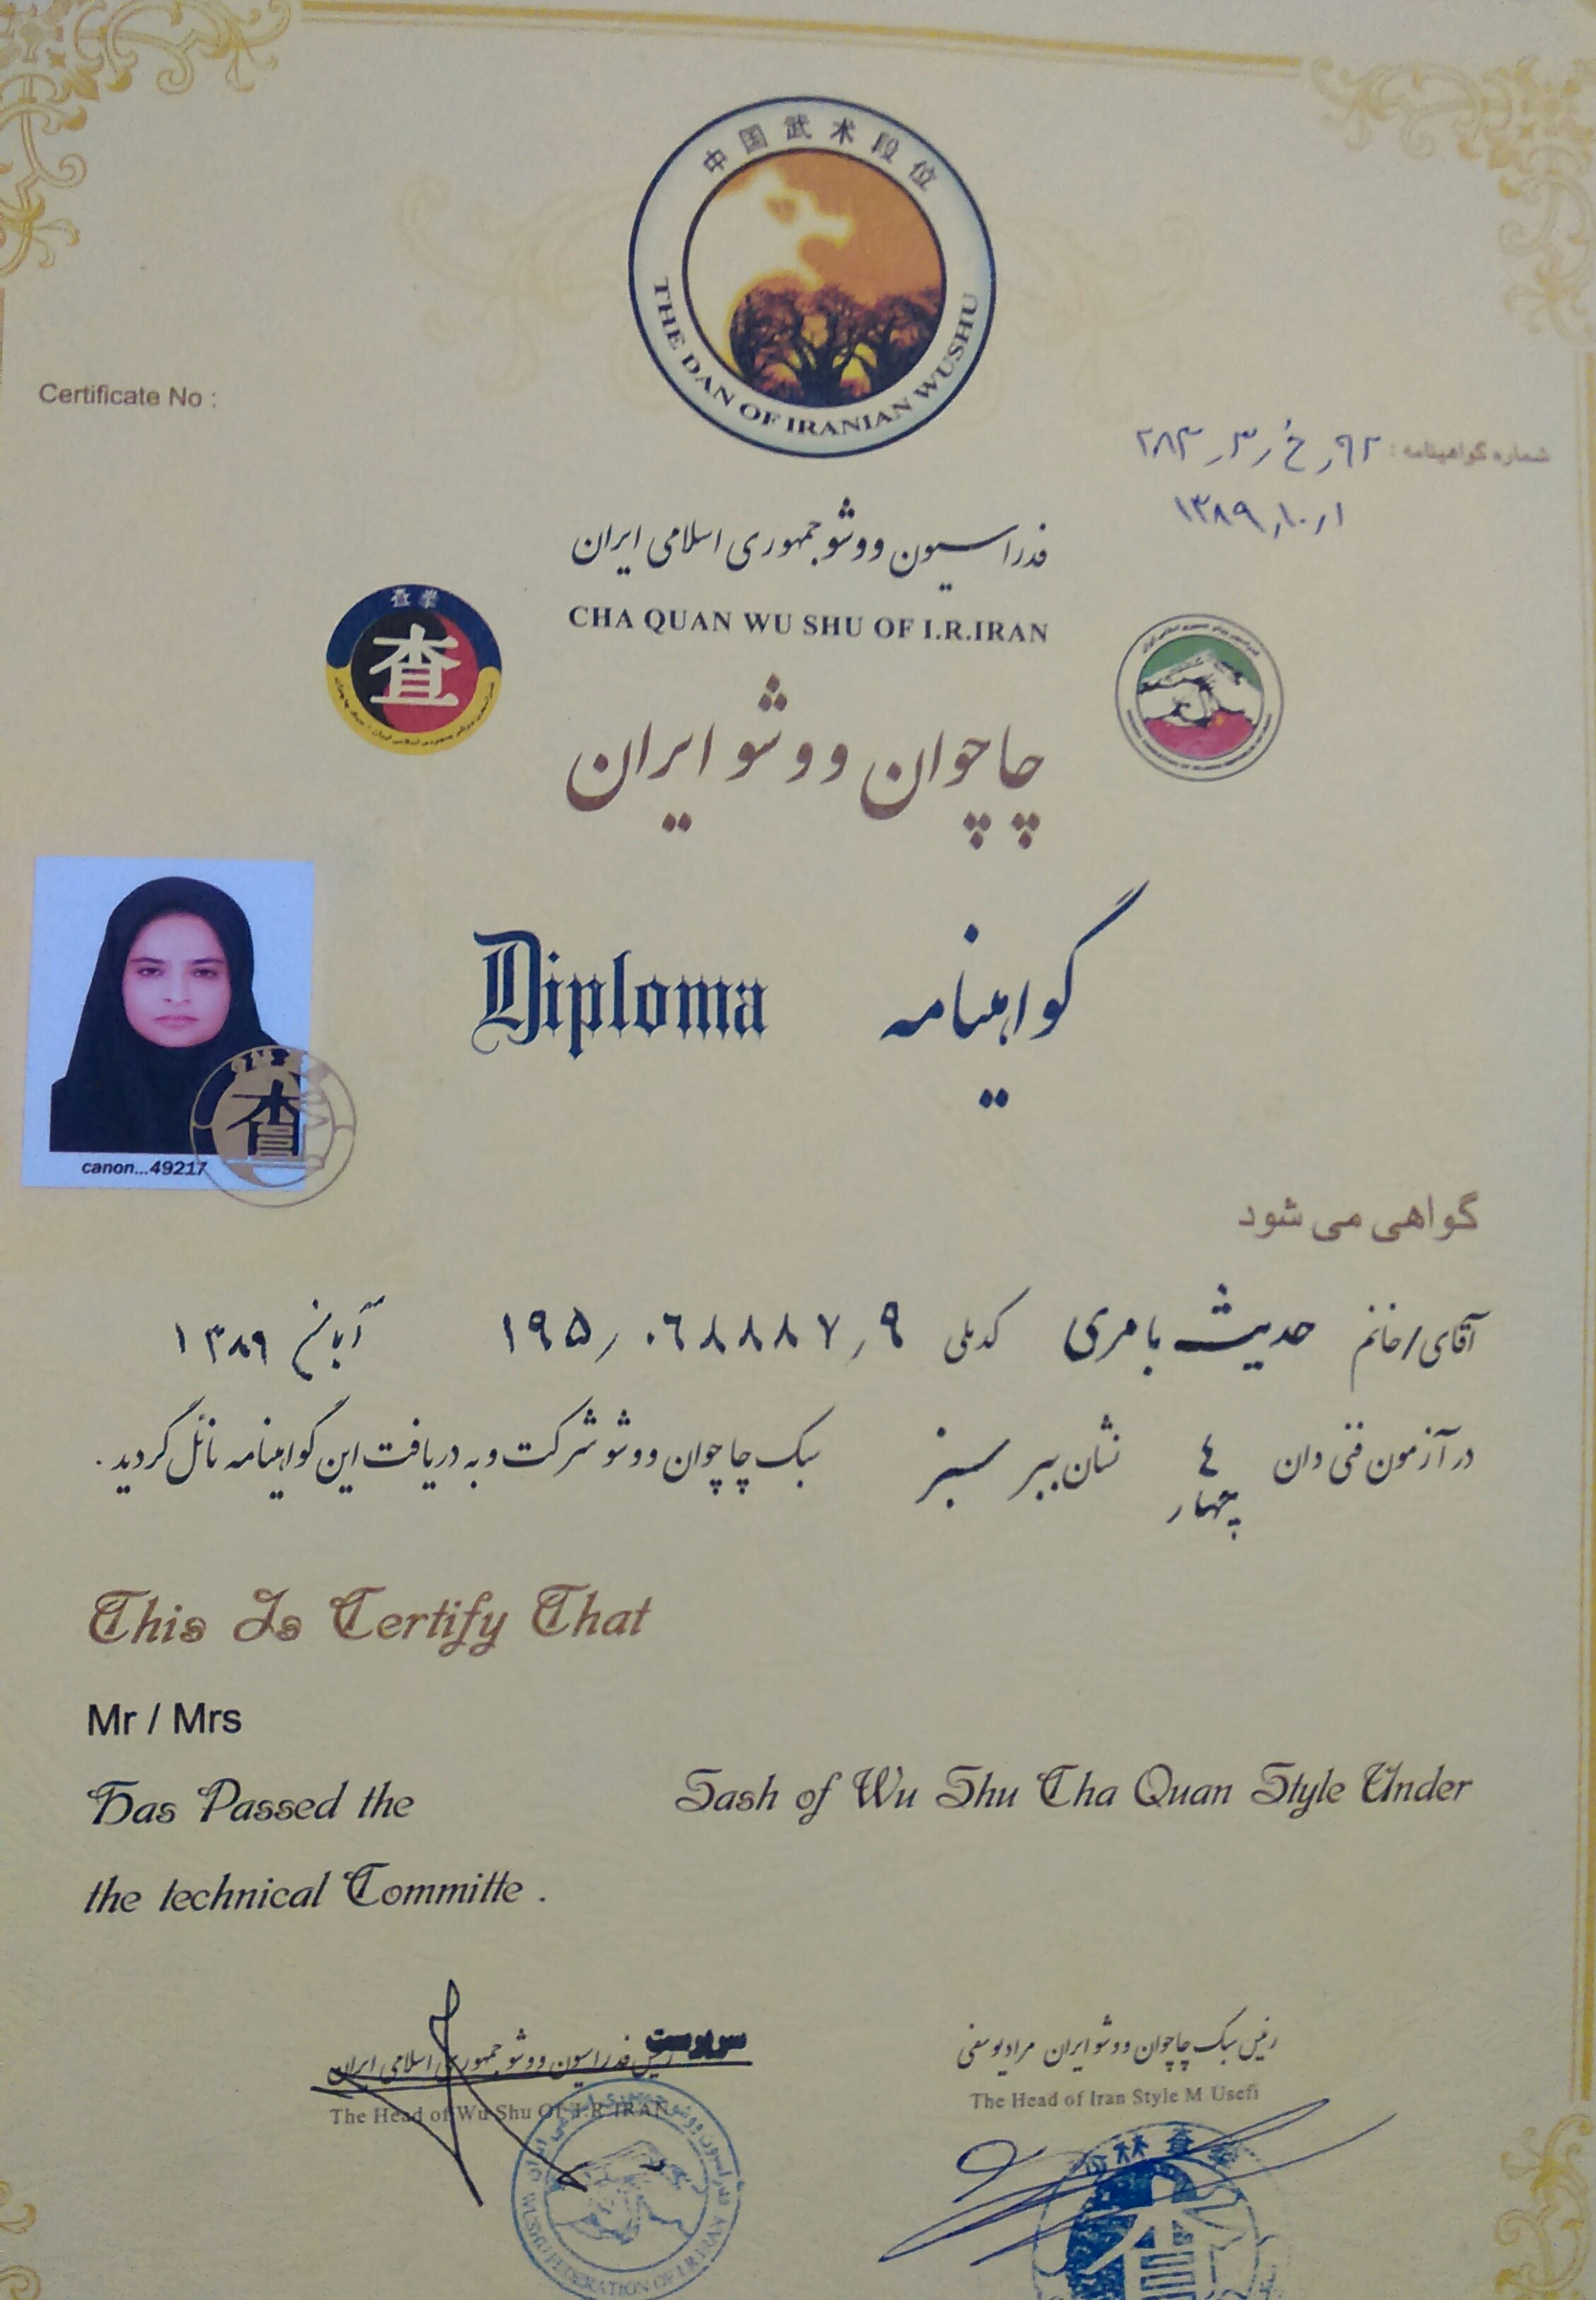 中国武术段位
THE DAN OF IRANIAN WUSHU
Certificate No :
شماره گواهینامه : ۹۲ر خ ر ۳ر ۲۸۳
۱۳۸۹ر۱۰ر۱
فدراسیون ووشو جمهوری اسلامی ایران
CHA QUAN WU SHU OF I.R.IRAN
查
چاچوان ووشو ایران
Diploma گواهینامه
查
canon...49217
گواهی می شود
آقای/خانم حدیث بامری کدملی ۱۹۵ر۰۶۸۸۸۷ر۹ ۱۳۸۹
در آزمون فنی دان ٤ نشان ببر سبز سبک چاچوان ووشو شرکت و به دریافت این گواهینامه نائل گردید .
چهار
This Is Certify That
Mr / Mrs
Has Passed the Sash of Wu Shu Cha Quan Style Under
the technical Committe .
سرپرست
رئیس فدراسیون ووشو جمهوری اسلامی ایران
The Head of Wu Shu Of I.R.IRAN
رئیس سبک چاچوان ووشو ایران مراد یوسفی
The Head of Iran Style M Usefi
WUSHU FEDERATION OF I.R.IRAN
林查